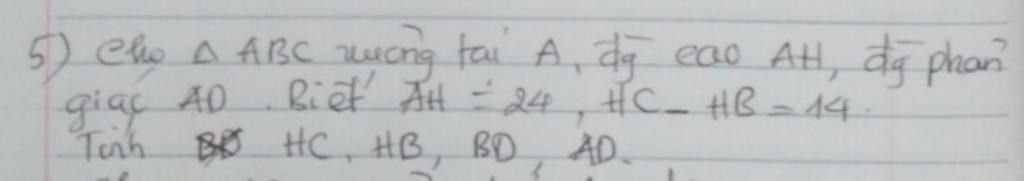 5) Cho Δ ABC vuông tại A, đg cao AH, đg phân
giác AD. Biết AH = 24, HC - HB = 14.
Tính HC, HB, BD, AD.